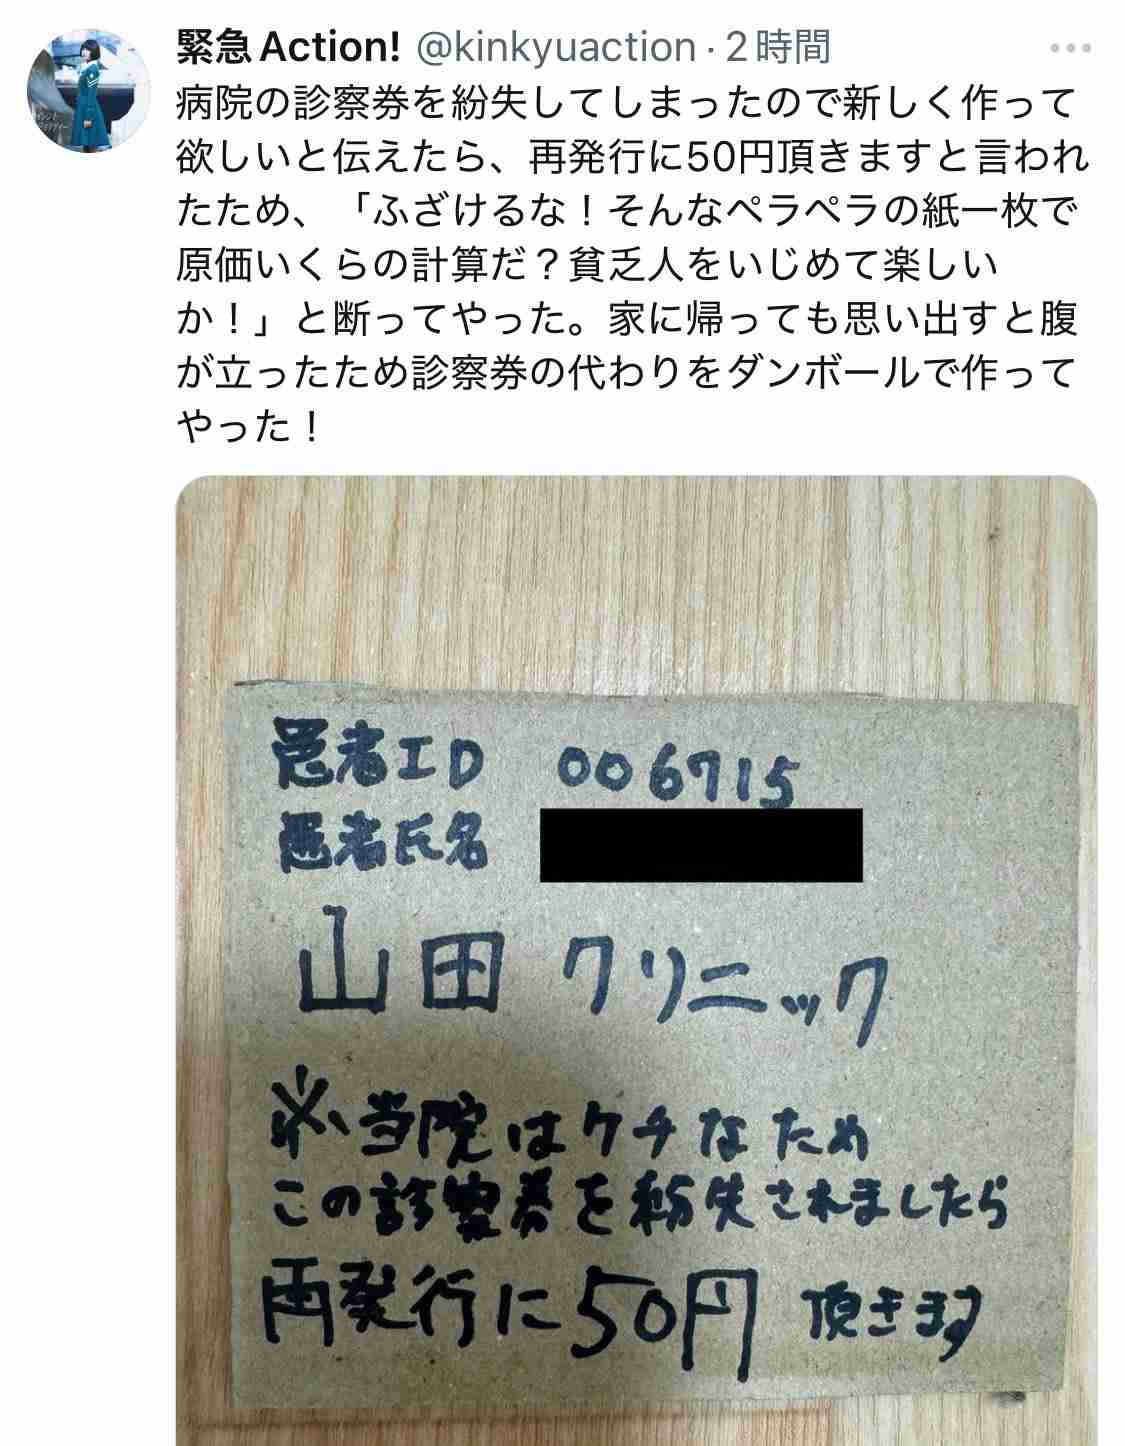 緊急Action! @kinkyuaction · 2時間
病院の診察券を紛失してしまったので新しく作って
欲しいと伝えたら、再発行に50円頂きますと言われ
たため、「ふざけるな！そんなペラペラの紙一枚で
原価いくらの計算だ？貧乏人をいじめて楽しい
か！」と断ってやった。家に帰っても思い出すと腹
が立ったため診察券の代わりをダンボールで作って
やった！
患者ID 006715
患者氏名
山田クリニック
※当院はケチなため
この診察券を紛失されましたら
再発行に50円頂きます